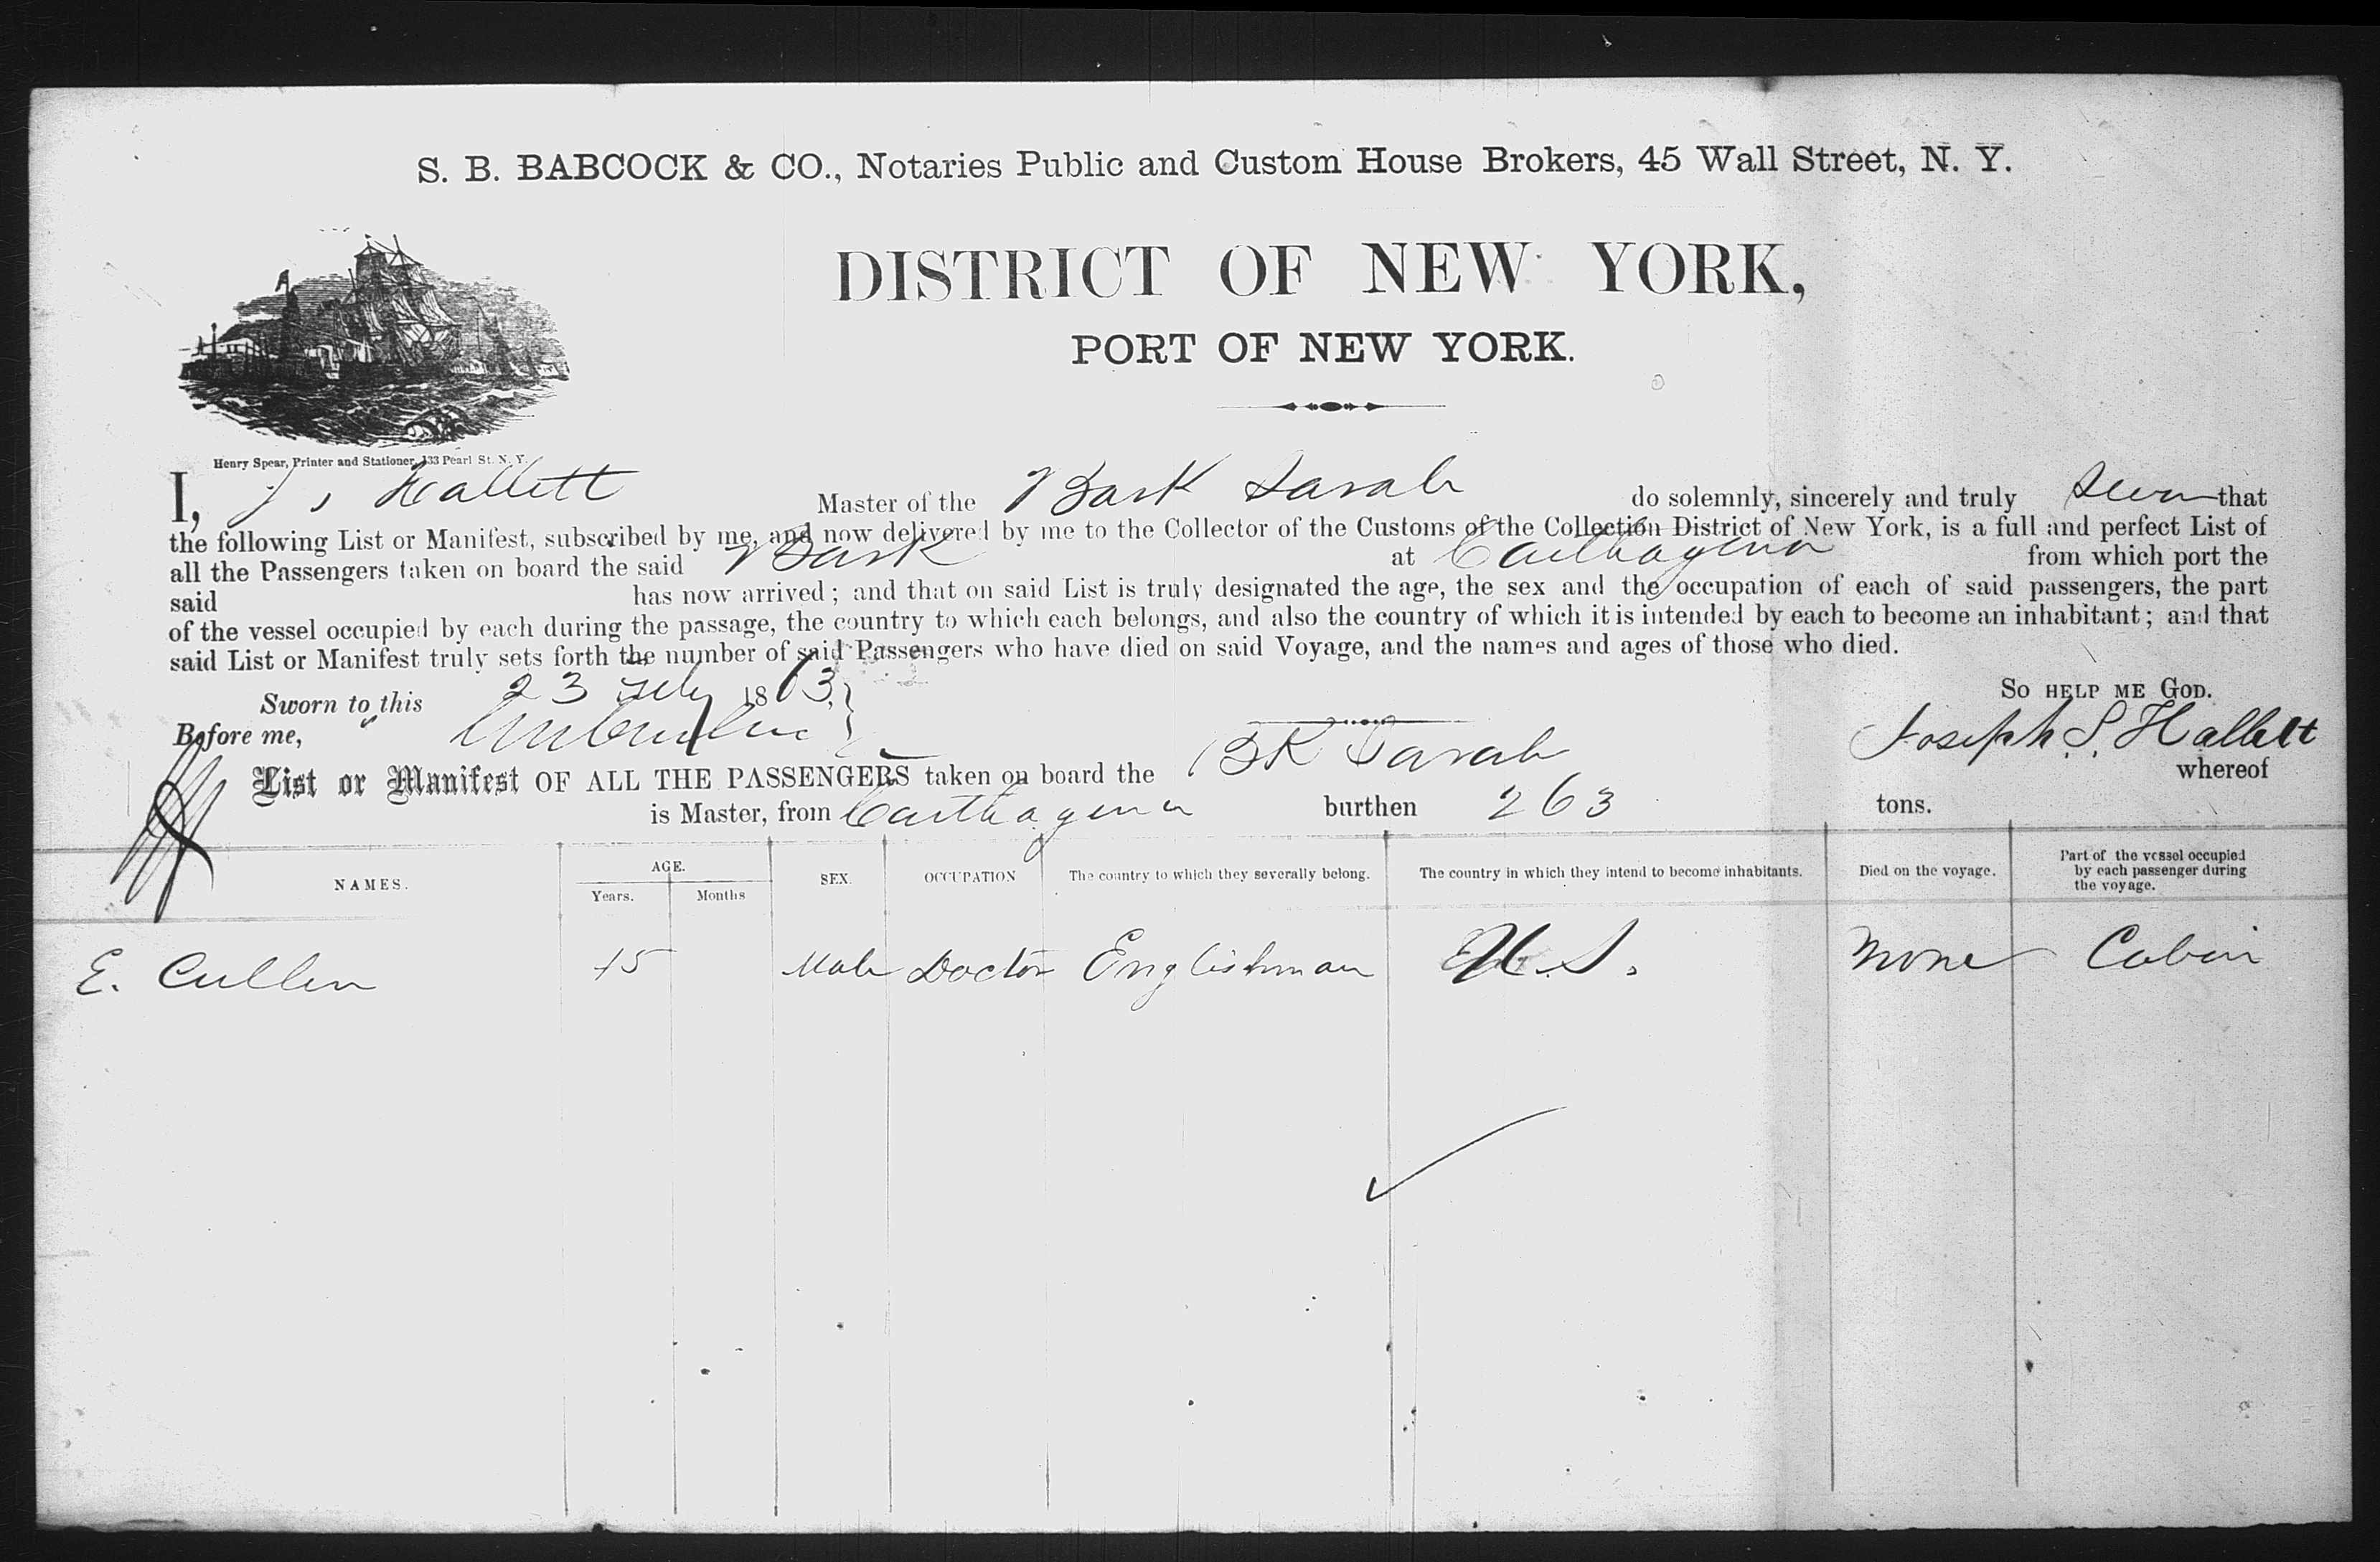 S. B. BABCOCK & CO., Notaries Public and Custom House Brokers, 45 Wall Street, N. Y.
DISTRICT OF NEW YORK,
PORT OF NEW YORK.
Henry Spear, Printer and Stationer, 133 Pearl St. N. Y.
I, J S Hallett Master of the Bark Sarah do solemnly, sincerely and truly swear that
the following List or Manifest, subscribed by me, and now delivered by me to the Collector of the Customs of the Collection District of New York, is a full and perfect List of
all the Passengers taken on board the said Bark at Carthagena from which port the
said has now arrived; and that on said List is truly designated the age, the sex and the occupation of each of said passengers, the part
of the vessel occupied by each during the passage, the country to which each belongs, and also the country of which it is intended by each to become an inhabitant; and that
said List or Manifest truly sets forth the number of said Passengers who have died on said Voyage, and the names and ages of those who died.
Sworn to this 23 1863, SO HELP ME GOD.
Before me, Joseph S. Hallett
List or Manifest OF ALL THE PASSENGERS taken on board the BK Sarah whereof
is Master, from Carthagena burthen 263 tons.
NAMES. AGE. Years. Months SEX. OCCUPATION The country to which they severally belong. The country in which they intend to become inhabitants. Died on the voyage. Part of the vessel occupied by each passenger during the voyage.
E. Cullen 45 Male Doctor Englishman U. S. None Cabin